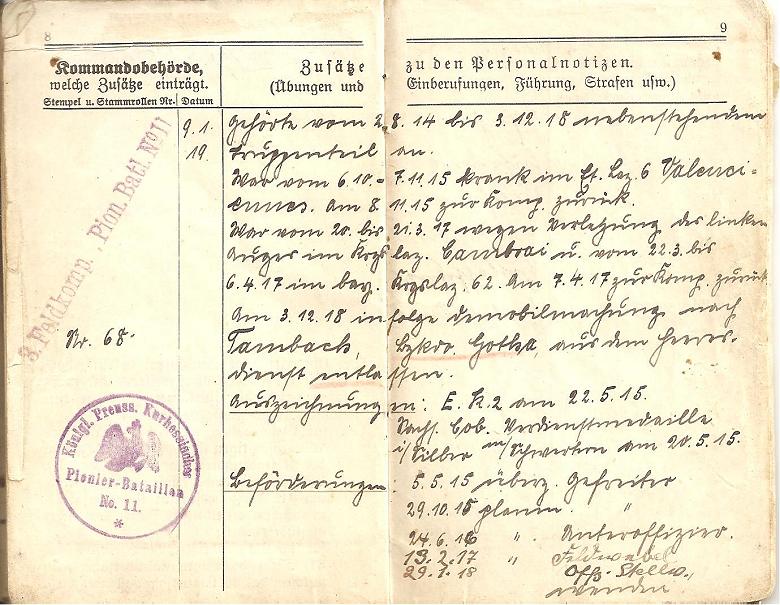 8
9
Kommandobehörde,
welche Zusätze einträgt.
Stempel u. Stammrollen Nr. Datum
Zusätze zu den Personalnotizen.
(Übungen und Einberufungen, Führung, Strafen usw.)
3. Feldkomp., Pion. Batl. No 11
Nr. 68.
Königl. Preuss. Kurhessisches
Pionier-Bataillon
No. 11.
*
9.1. Gehörte vom 2.8.14 bis 3.12.18 nebenstehendem
19. Truppenteil an.
War vom 6.10.- 7.11.15 krank im Et. Laz. 6 Valenci-
ennes. am 8.11.15 zur Komp. zurück.
War vom 20. bis 21.3.17 wegen Verletzung des linken
Auges im Krgslaz. Cambrai u. vom 22.3. bis
6.4.17 im bay. Krgslaz. 62. Am 7.4.17 zur Komp. zurück
Am 3.12.18 infolge Demobilmachung nach
Tambach, Bzkdo. Gotha, aus dem Heeres-
dienst entlassen.
Auszeichnungen: E.K.2 am 22.5.15.
Sachs. Cob. Verdienstmedaille
i/Silber m/Schwertern am 20.5.15.
Beförderungen: 5.5.15 überz. Gefreiter
29.10.15 planm. "
24.6.16 ". Unteroffizier.
13.2.17 " Feldwebel
29.1.18 Offz. Stellv.,
wenden.